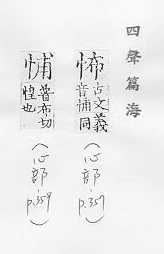 四聲篇海
怖
古文義
音悑同
(心部-p.359)
悑
普布切
惶也
(心部-p.359)